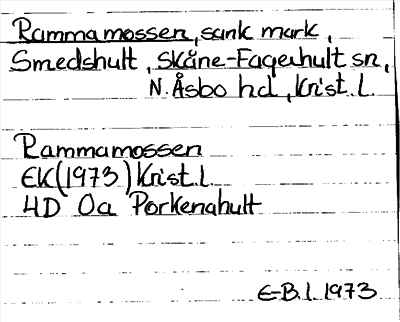 Rammamossen, sank mark,
Smedshult, Skåne-Fagerhult sn,
N. Åsbo hd, Krist. l.
Rammamossen
EK(1973) Krist. l.
4D Oa Porkenahult
E-B. l. 1973